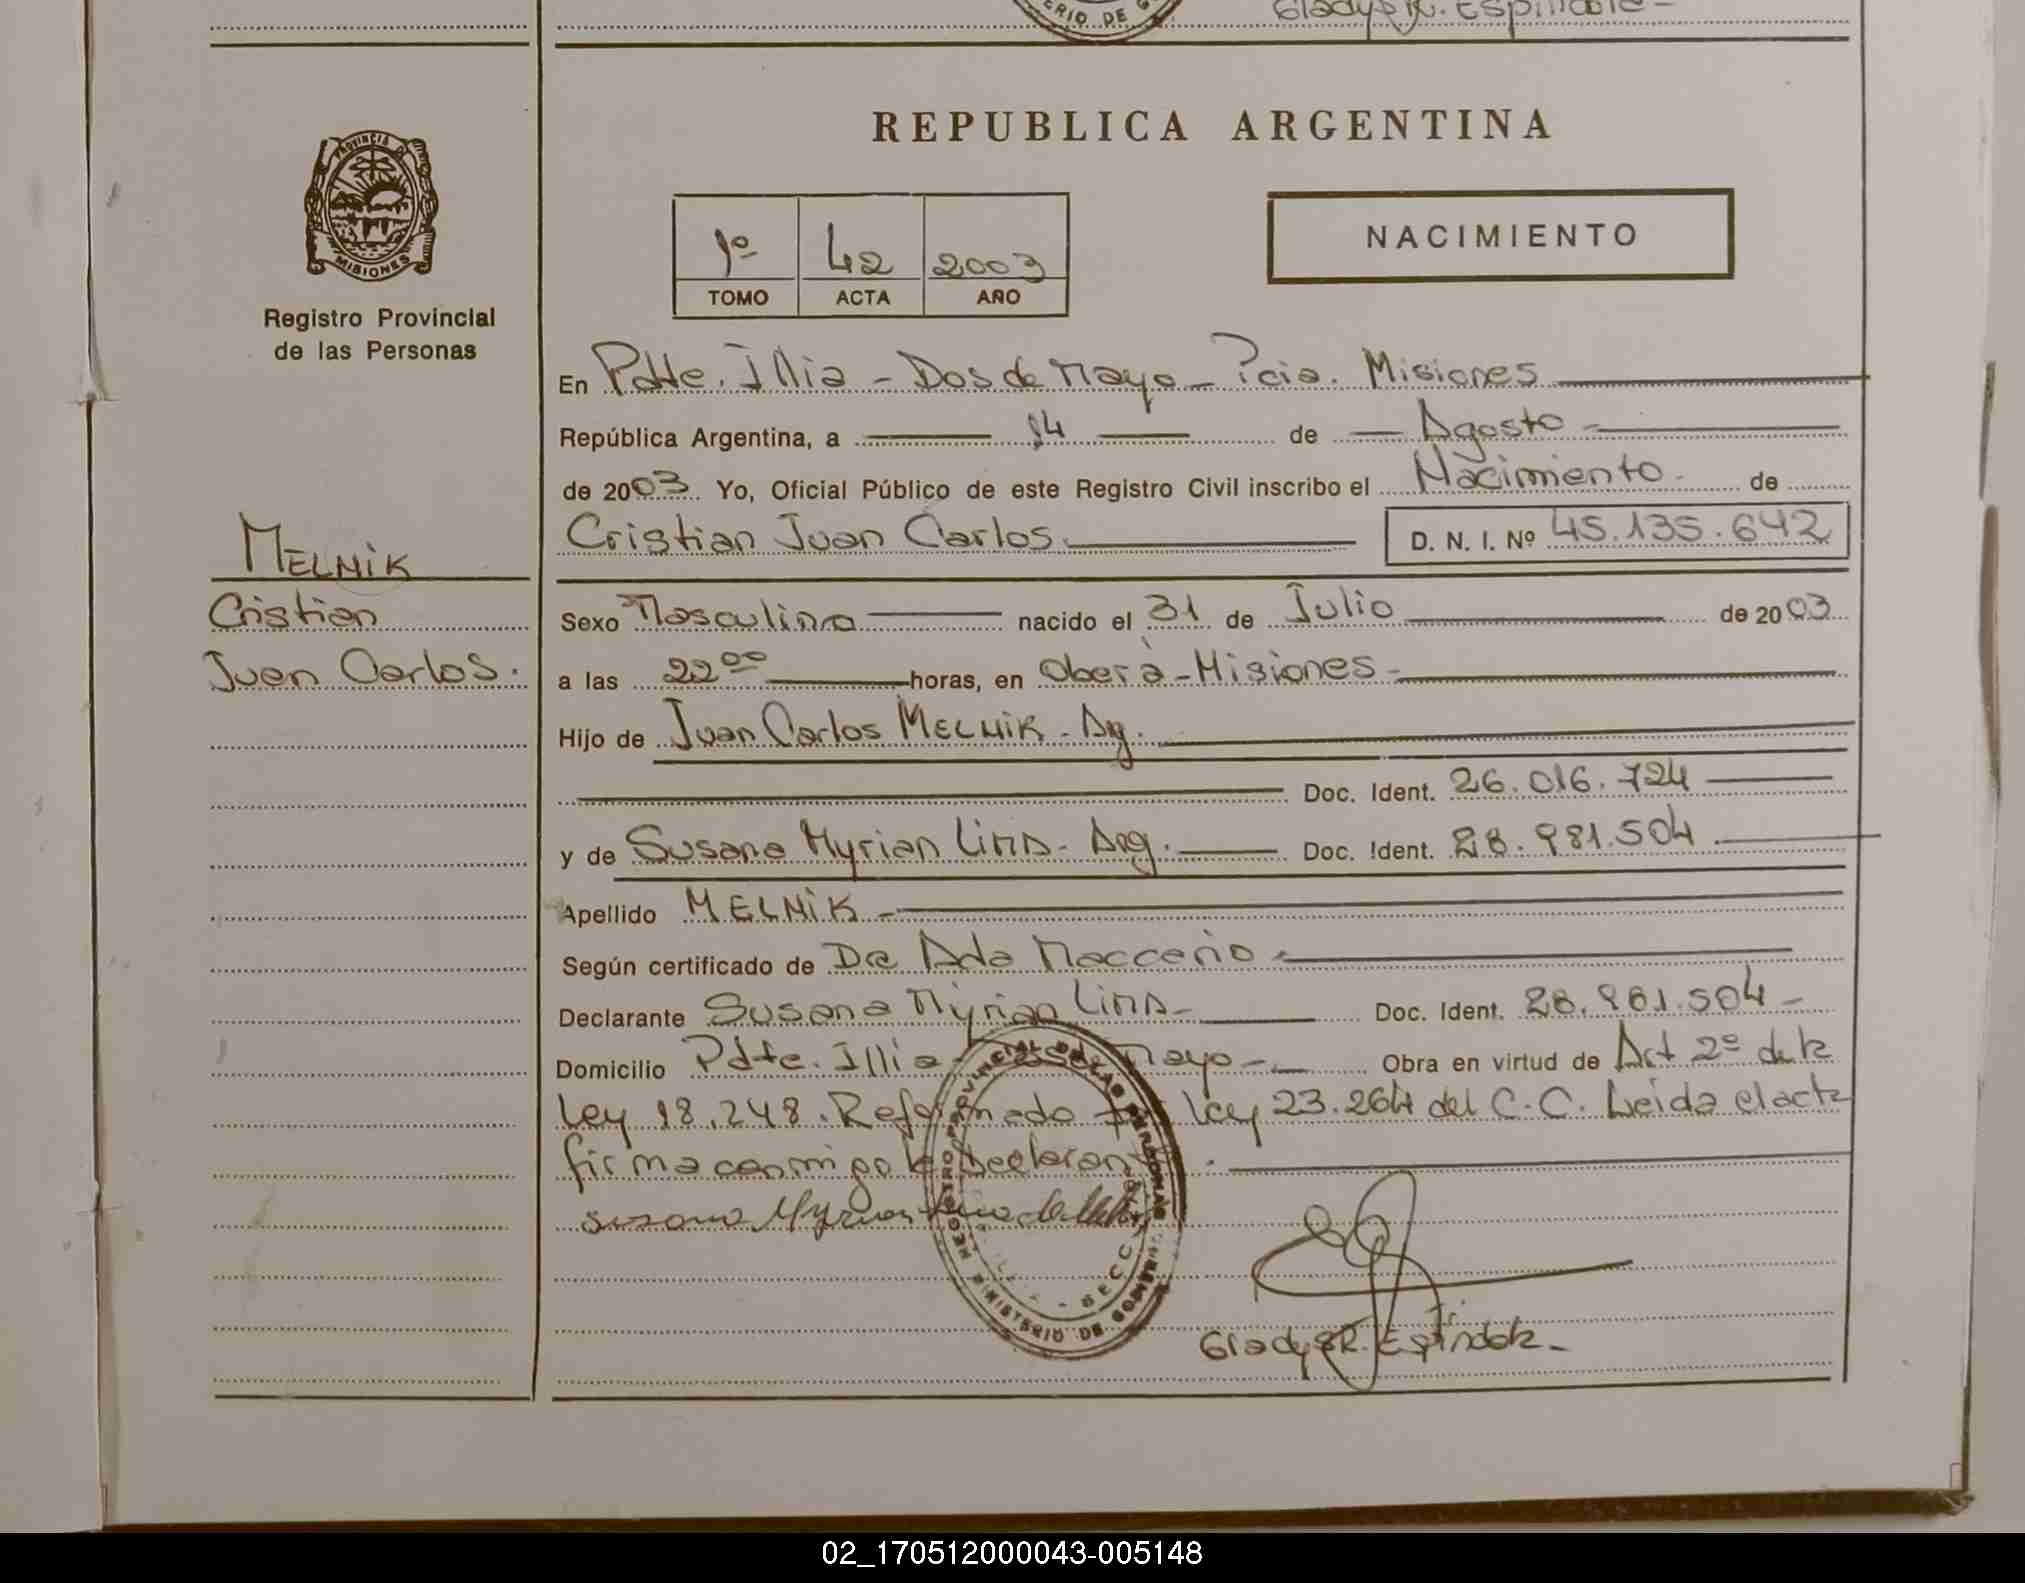 Gladys R. Espindola -
REPUBLICA ARGENTINA
PROVINCIA DE
MISIONES
Registro Provincial
de las Personas
1º 42 2003
TOMO ACTA AÑO
NACIMIENTO
En Pdte. Illia - Dos de Mayo - Pcia. Misiones
República Argentina, a 14 de Agosto -
de 2003. Yo, Oficial Público de este Registro Civil inscribo el Nacimiento - de
MELNIK
Cristian
Juan Carlos.
Cristian Juan Carlos. D. N. I. Nº 45.135.642
Sexo Masculino nacido el 31 de Julio de 2003
a las 22⁰⁰ horas, en Oberà - Misiones -
Hijo de Juan Carlos MELNIK - Arg.
Doc. Ident. 26.016.724
y de Susana Myrian Lima - Arg. Doc. Ident. 28.981.504
Apellido MELNIK -
Según certificado de Dra Ada Maccerio -
Declarante Susana Myrian Lima - Doc. Ident. 28.981.504 -
Domicilio Pdte. Illia - Dos de Mayo - Obra en virtud de Art 2º de la
Ley 18.248. Reformado Ley 23.264 del C.C. Leida el acta
firma conmigo la Declarante.
Susana Myrian Lima de
REGISTRO PROVINCIAL DE LAS PERSONAS
MINISTERIO DE GOBIERNO
SECC
Gladys R. Espindola -
02_170512000043-005148